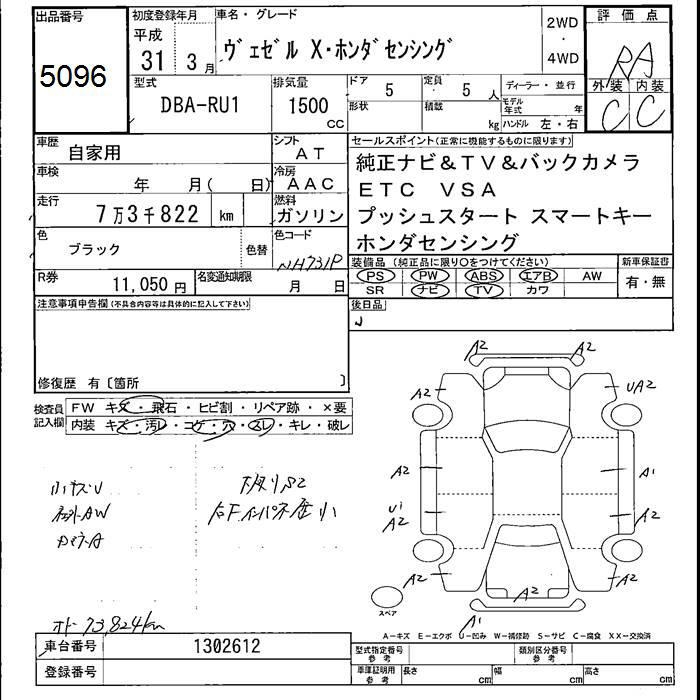 出品番号
5096
初度登録年月
平成
31 3月
車名・グレード
ヴェゼル X・ホンダセンシング
2WD
・
4WD
評価点
RA
外装 内装
C C
型式
DBA-RU1
排気量
1500
cc
ドア 5
定員 5人
形状
積載 kg
ディーラー・並行
モデル年式 年
ハンドル 左・右
車歴 自家用
シフト AT
車検 年 月( 日)
冷房 AAC
走行 7万3千822 km
燃料 ガソリン
色 ブラック
色替
色コード NH731P
R券 11,050円
名変通知期限 月 日
セールスポイント(正常に機能するものに限ります)
純正ナビ&TV&バックカメラ
ETC VSA
プッシュスタート スマートキー
ホンダセンシング
装備品(純正品に限り○をつけてください)
PS PW ABS エアB AW
SR ナビ TV カワ
新車保証書
有・無
後日品
注意事項申告欄(不具合内容等は具体的に記入して下さい)
修復歴 有〔箇所 〕
検査員記入欄
FW キズ・飛石・ヒビ割・リペア跡・×要
内装 キズ・汚レ・コゲ・穴・スレ・キレ・破レ
A2 A2
A2 UA2
A2 A1
U1
A2 A2
A2 A2 A2
A1
スペア
73,824km
A-キズ E-エクボ U-凹み W-補修跡 S-サビ C-腐食 XX-交換済
車台番号 1302612
登録番号
型式指定番号 参考
類別区分番号 参考
車庫証明用 参考
長さ cm 幅 cm 高さ cm